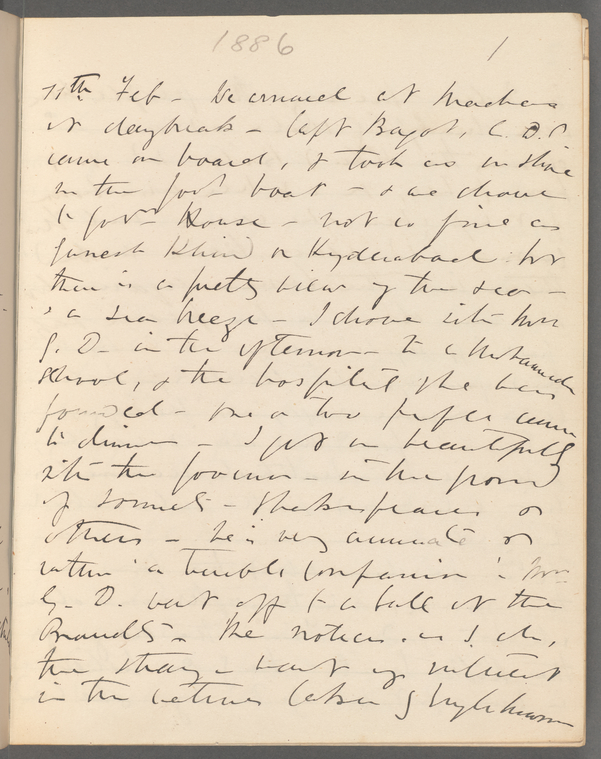 1886 1
11th Feb - We arrived at Madras
at daybreak - Capt Bagot, A.D.C
came on board, & took us on shore
in the Govt boat - & we drove
to Govt House - not so fine as
Ganesh Khind or Hyderabad but
there is a pretty view of the sea -
& a sea breeze - I drove with Mrs
G. D. in the afternoon - to a Mohammedan
school, & the hospital she has
founded - one or two people came
to dinner - I got on beautifully
with the Governor - on the ground
of sonnets - Shakespeares or
others - he is very
rather 'a terrible companion' : Mrs
G. D. went off to a ball at the
Brandts - She notices as I do,
the strange want of interest
in the natives taken by